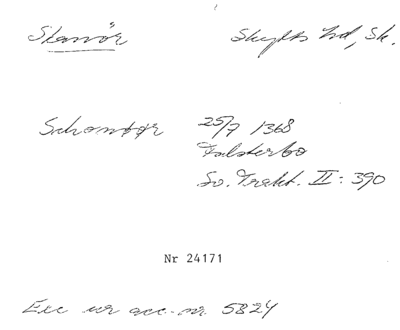 Skanör Skytts hd, Sk.
Schonøør 25/7 1368
Falsterbo
Sv. Trakt. II: 390
Nr 24171
Exc ur acc. nr. 5824